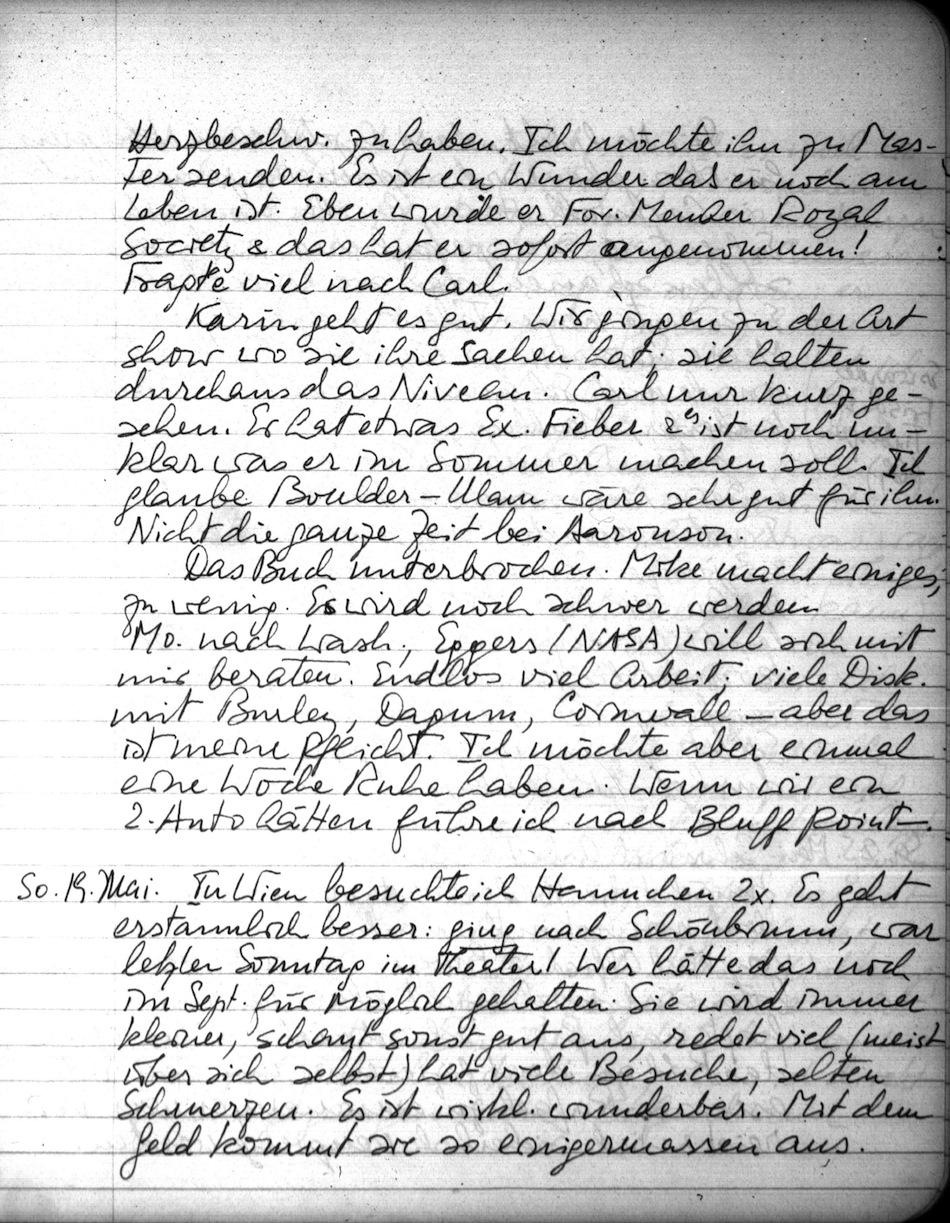 Herzbeschw. zu haben. Ich möchte ihn zu Mas-
ter senden. Es ist ein Wunder das er noch am
Leben ist. Eben wurde er For. Member Royal
Society & das hat er sofort angenommen!
Fragte viel nach Carl.
Karin geht es gut. Wir gingen zu der Art
show wo sie ihre Sachen hat; sie halten
durchaus das Niveau. Carl nur kurz ge-
sehen. Er hat etwas Ex. Fieber & es ist noch un-
klar was er im Sommer machen soll. Ich
glaube Boulder – Ulam wäre sehr gut für ihn.
Nicht die ganze Zeit bei Aaronson.
Das Buch unterbrochen. Mike macht einiges,
zu wenig. Es wird noch schwer werden
Mo. nach Wash., Eggers (NASA) will sich mit
mir beraten. Endlos viel Arbeit; viele Disk.
mit Burley, Dagum, Cornwall – aber das
ist meine Pflicht. Ich möchte aber einmal
eine Woche Ruhe haben. Wenn wir ein
2. Auto hätten führe ich nach Bluff Point.
So. 19. Mai. In Wien besuchte ich Hannchen 2x. Es geht
erstaunlich besser: ging nach Schönbrunn, war
letzten Sonntag im Theater! Wer hätte das noch
im Sept. für möglich gehalten. Sie wird immer
kleiner, schaut sonst gut aus, redet viel (meist
über sich selbst) hat viele Besuche, selten
Schmerzen. Es ist wirkl. wunderbar. Mit dem
Geld kommt sie so einigermassen aus.